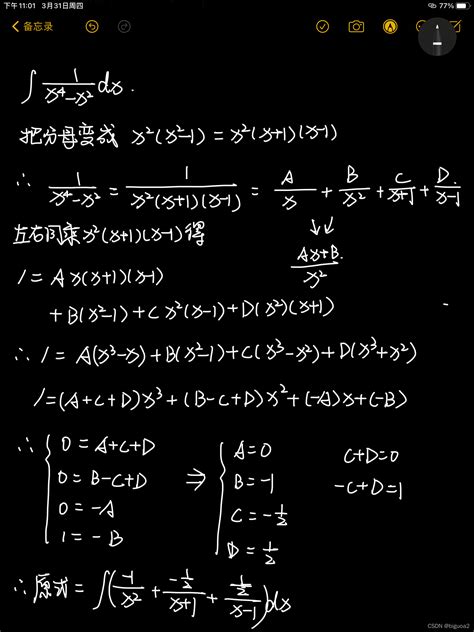 下午11:01 3月31日周四 77%
备忘录
∫ 1/(x⁴-x²) dx.
把分母变成 x²(x²-1) = x²(x+1)(x-1)
∴ 1/(x⁴-x²) = 1/(x²(x+1)(x-1)) = A/x + B/x² + C/(x+1) + D/(x-1)
左右同乘x²(x+1)(x-1)得
↓↓
(Ax+B)/x²
1 = Ax(x+1)(x-1)
+ B(x²-1) + Cx²(x-1) + D(x²)(x+1)
∴ 1 = A(x³-x) + B(x²-1) + C(x³-x²) + D(x³+x²)
1 = (A+C+D)x³ + (B-C+D)x² + (-A)x + (-B)
∴ { 0 = A+C+D ⇒ { A=0 C+D=0
0 = B-C+D B=-1 -C+D=1
0 = -A C=-1/2
1 = -B D=1/2
∴ 原式 = ∫(-1/x² + (-1/2)/(x+1) + (1/2)/(x-1))dx
CSDN @biguoa2